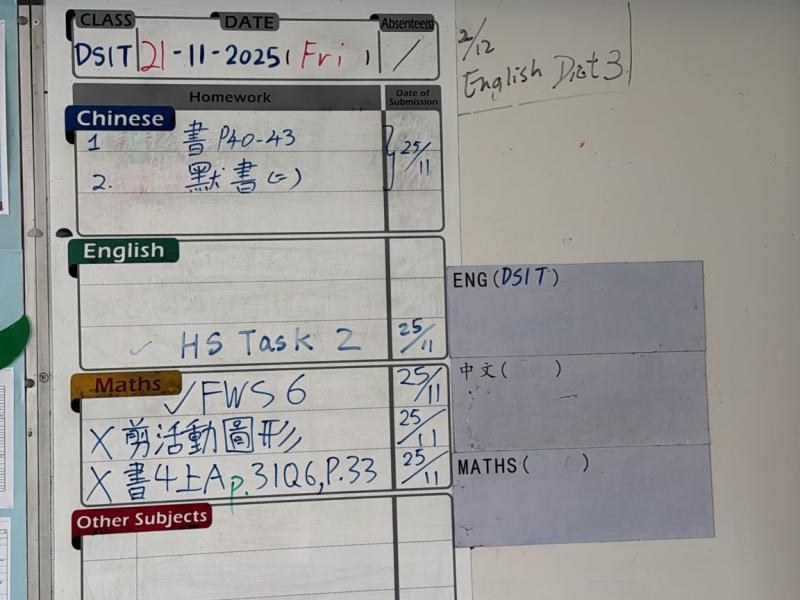 CLASS DATE Absentee(s)
DSIT 21-11-2025 (Fri) /
Homework Date of Submission
Chinese
1 書 P40-43 25/11
2. 默書(二)
English
✓ HS Task 2 25/11
Maths
✓ FWS 6 25/11
X 剪活動圖形 25/11
X 書4上A p.31Q6,P.33 25/11
Other Subjects
2/12
English Dict 3
ENG (DSIT)
中文( )
MATHS ( )